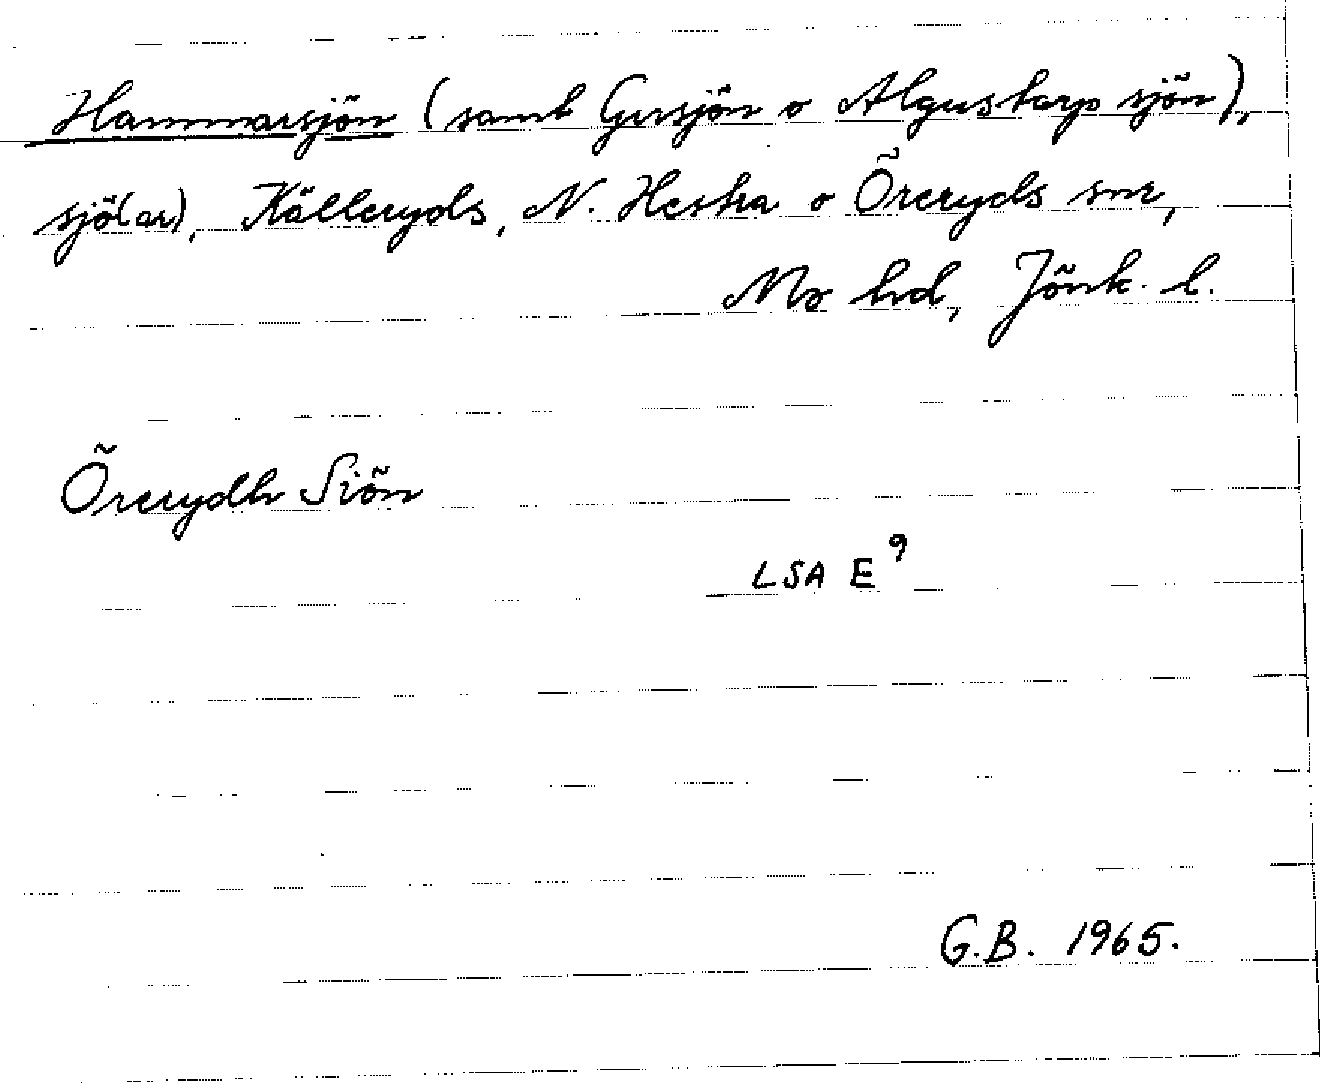 Hammarsjön (samt Gursjön o Algustorp sjön),
sjö(ar), Kålleryds, N. Hestra o Öreryds snr,
Mo hd, Jönk. l.
Örerydh Siön
LSA E⁹
G.B. 1965.